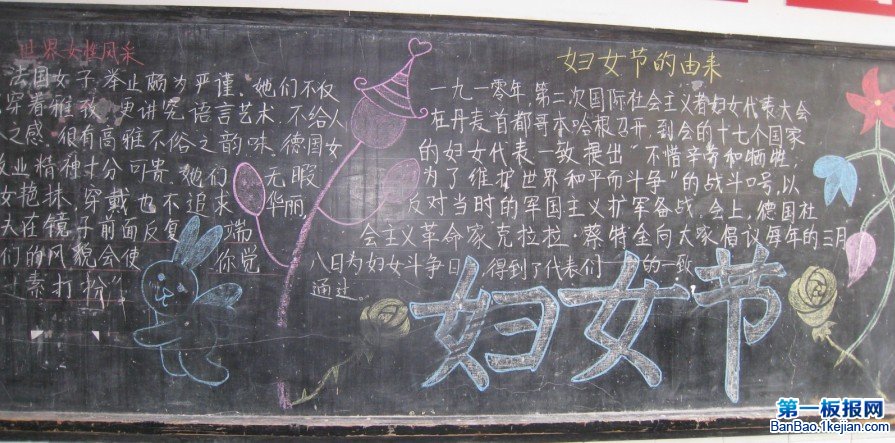 世界女性风采
法国女子,举止颇为严谨。她们不仅
穿着雅致,更讲究语言艺术,不给人
之感,很有高雅不俗之韵味。德国女
敬业精神十分可贵。她们 无暇
女艳抹,穿戴也不追求 华丽,
天在镜子前面反复 端
们的风貌会使 你觉
素打粉”。
妇女节的由来
一九一零年,第二次国际社会主义者妇女代表大会
在丹麦首都哥本哈根召开,到会的十七个国家
的妇女代表一致提出“不惜辛劳和牺牲,
为了维护世界和平而斗争”的战斗口号,以
反对当时的军国主义扩军备战。会上,德国社
会主义革命家克拉拉·蔡特金向大家倡议每年的三月
八日为妇女斗争日,得到了代表们 的一致
通过。
妇女节
第一板报网
BanBao.1kejian.com